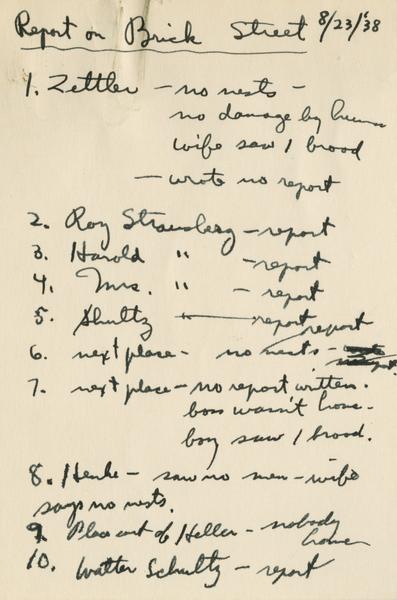 Report on Brick Street 8/23/'38
1. Zettler - no nests -
no damage by hunters
wife saw 1 brood
- wrote no report
2. Roy Strausberg - report
3. Harold " - report
4. Mrs. " - report
5. Shultz " - report
6. next place - no nests - report
7. next place - no report written.
boss wasn't home -
boy saw 1 brood.
8. Henke - saw no men - wife
says no nests.
9. Place east of Heller - nobody
home
10. Walter Schultz - report